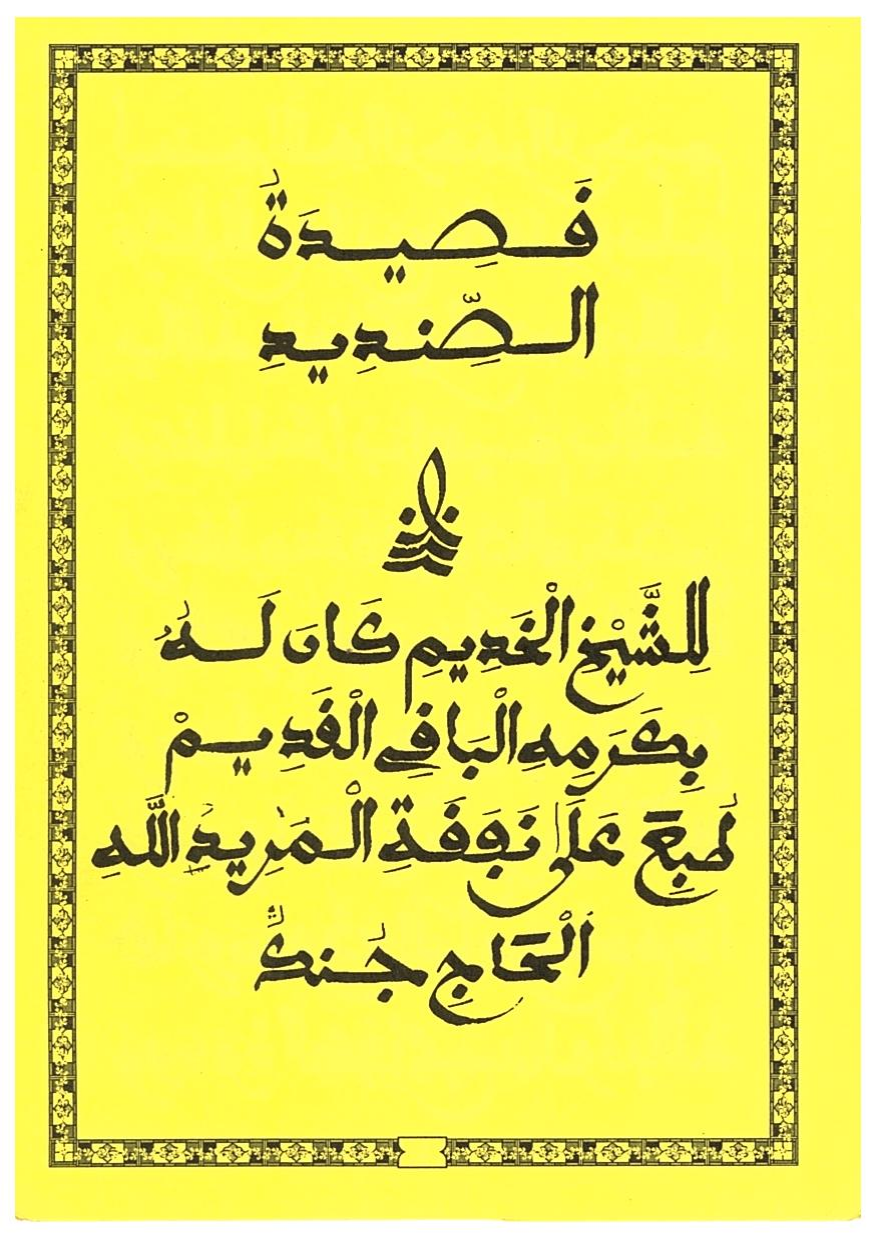 قَصِيدَةُ
الصِّنْدِيدِ
لِلشَّيْخِ الْخَدِيمِ كَانَ لَهُ
بِكَرَمِهِ الْبَاقِي الْقَدِيمْ
طُبِعَ عَلَى نَفَقَةِ الْمُرِيدُ اللَّهِ
الْحَاجِ جُنْكُ